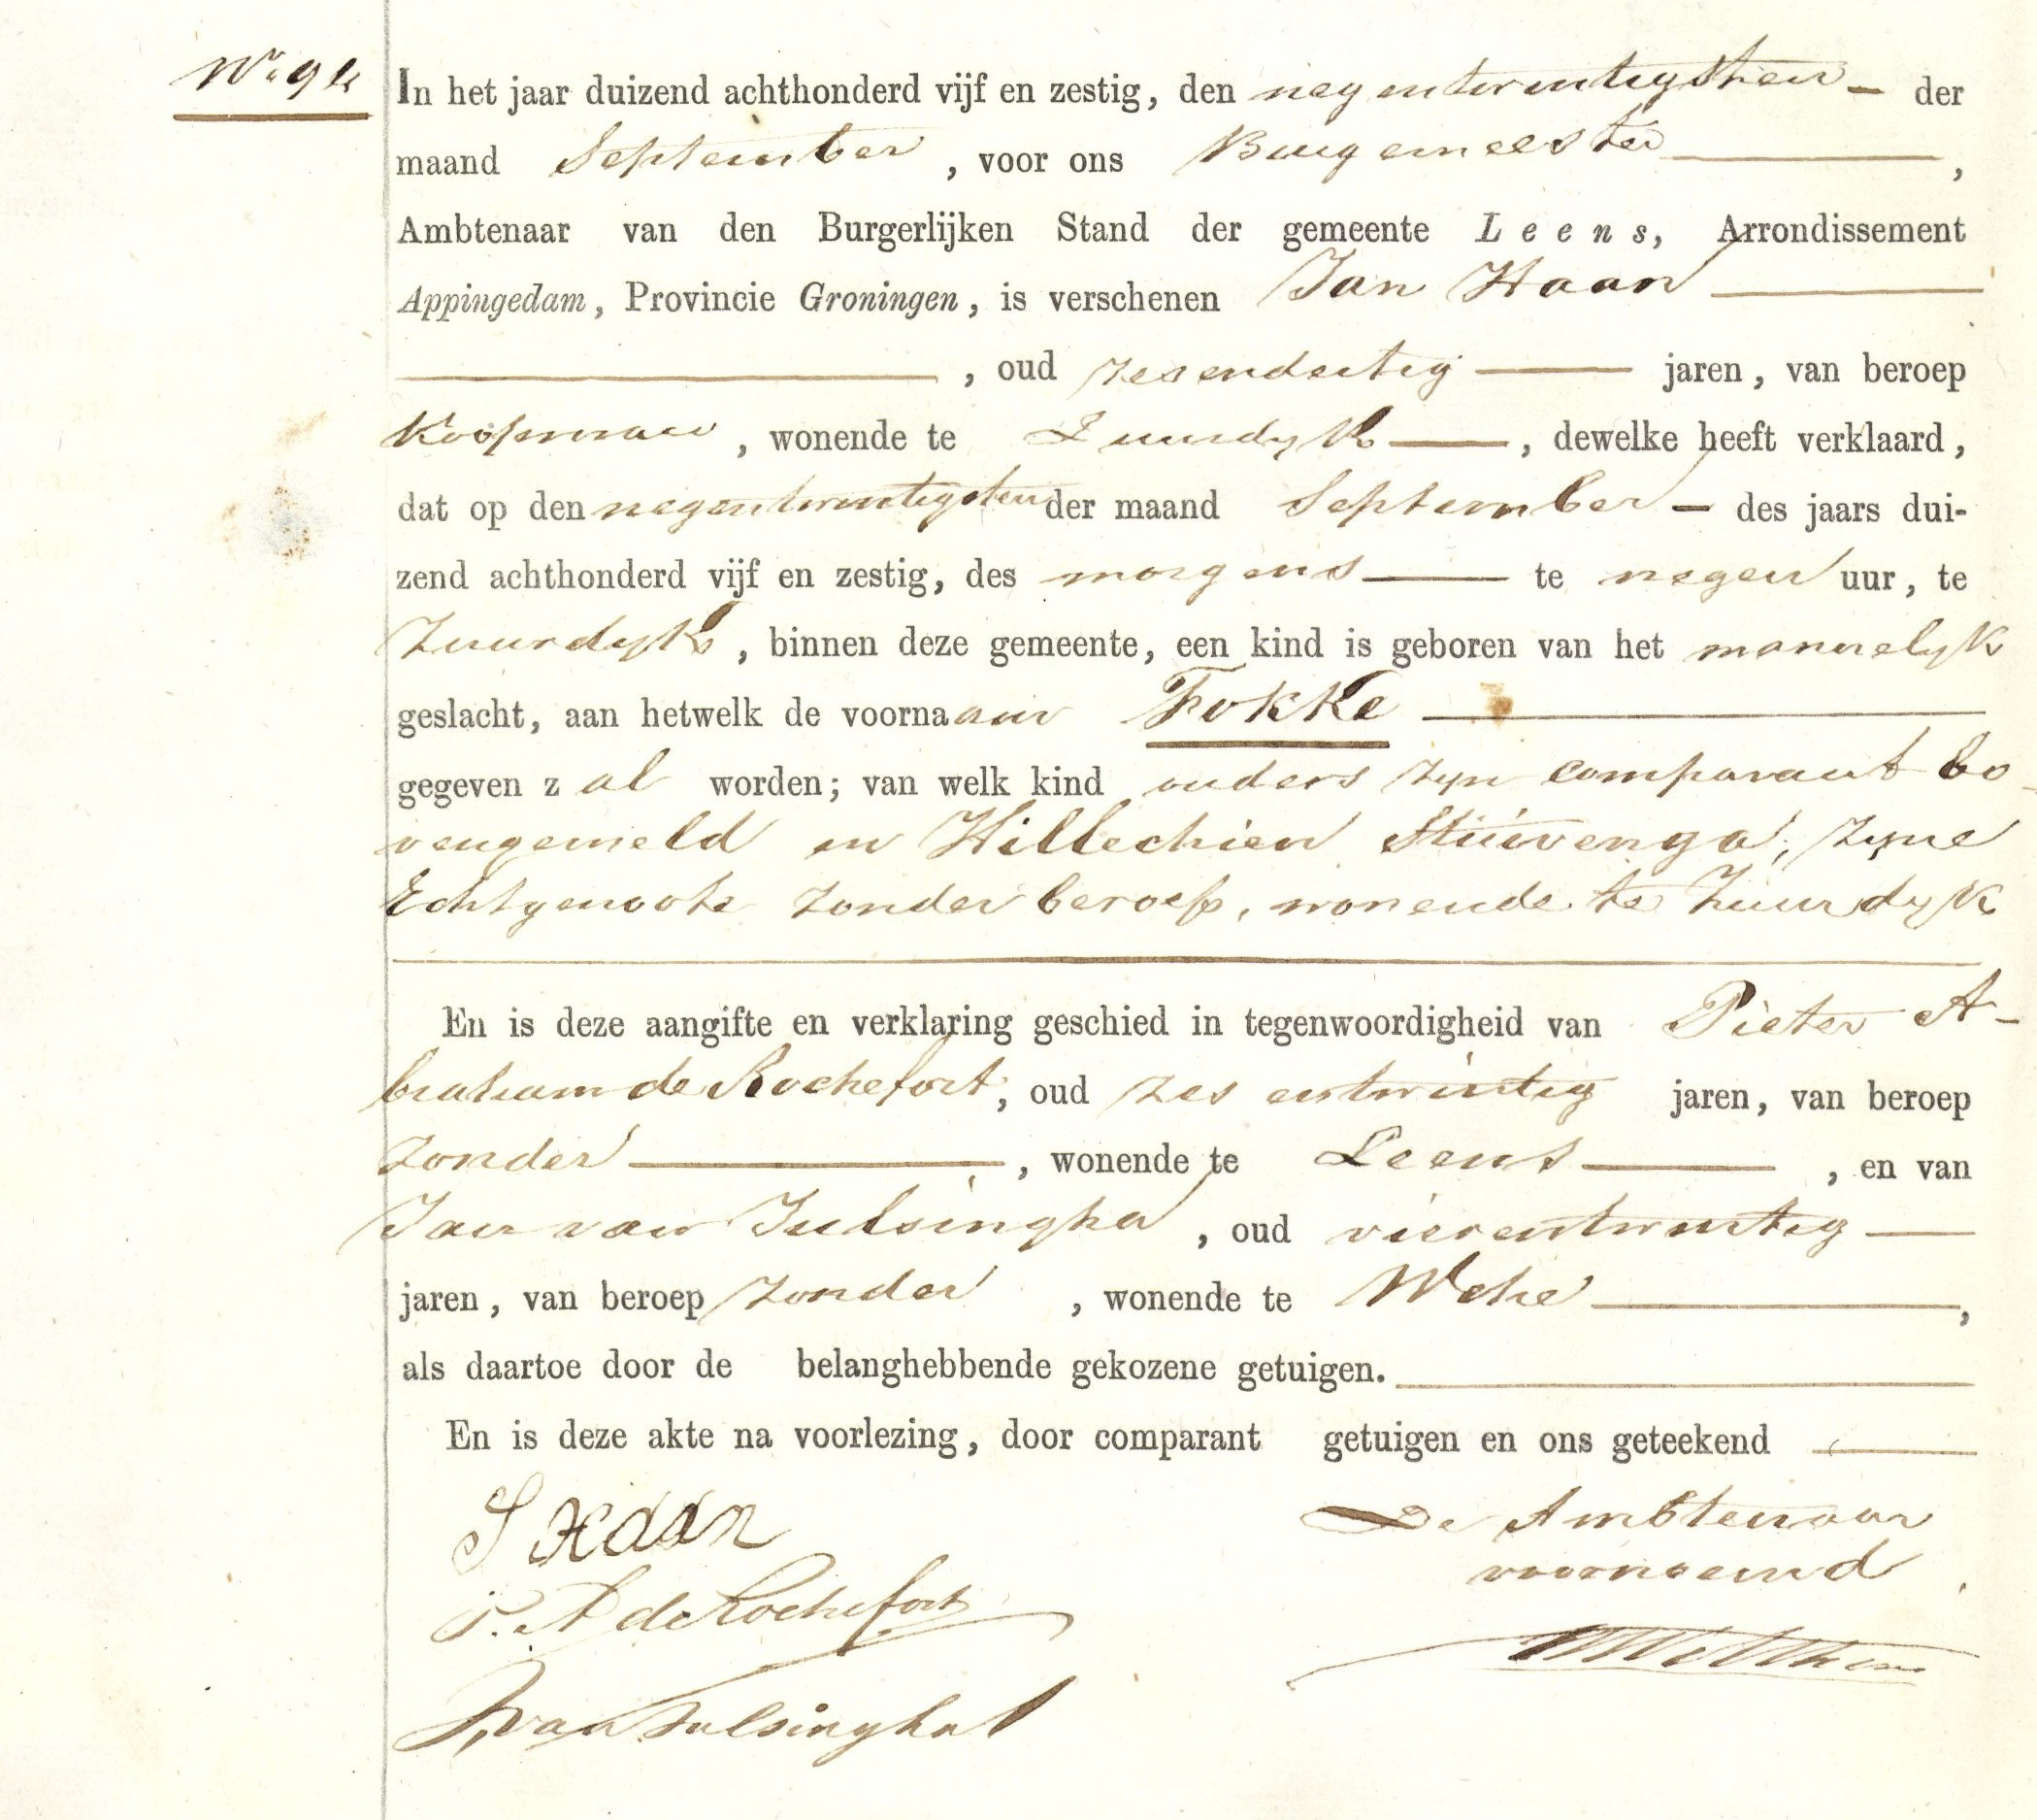 No 94
In het jaar duizend achthonderd vijf en zestig, den negentwintigsten der
maand September, voor ons Burgemeester,
Ambtenaar van den Burgerlijken Stand der gemeente Leens, Arrondissement
Appingedam, Provincie Groningen, is verschenen Jan Haan
, oud zesendertig jaren, van beroep
Koopman, wonende te Zuurdyk, dewelke heeft verklaard,
dat op den negentwintigsten der maand September des jaars dui-
zend achthonderd vijf en zestig, des morgens te negen uur, te
Zuurdyk, binnen deze gemeente, een kind is geboren van het mannelyk
geslacht, aan hetwelk de voornaam Fokke
gegeven zal worden; van welk kind ouders zyn comparant bo-
vengemeld en Hillechien Stuivenga, zyne
Echtgenoote zonder beroep, wonende te Zuurdyk
En is deze aangifte en verklaring geschied in tegenwoordigheid van Pieter A-
braham de Rochefort, oud zes entwintig jaren, van beroep
zonder, wonende te Leens, en van
Jan van Julsingha, oud vierentwintig
jaren, van beroep zonder, wonende te Wehe,
als daartoe door de belanghebbende gekozene getuigen.
En is deze akte na voorlezing, door comparant getuigen en ons geteekend
J Haan
De Ambtenaar
voornoemd
P. A de Rochefort
J van Julsingha